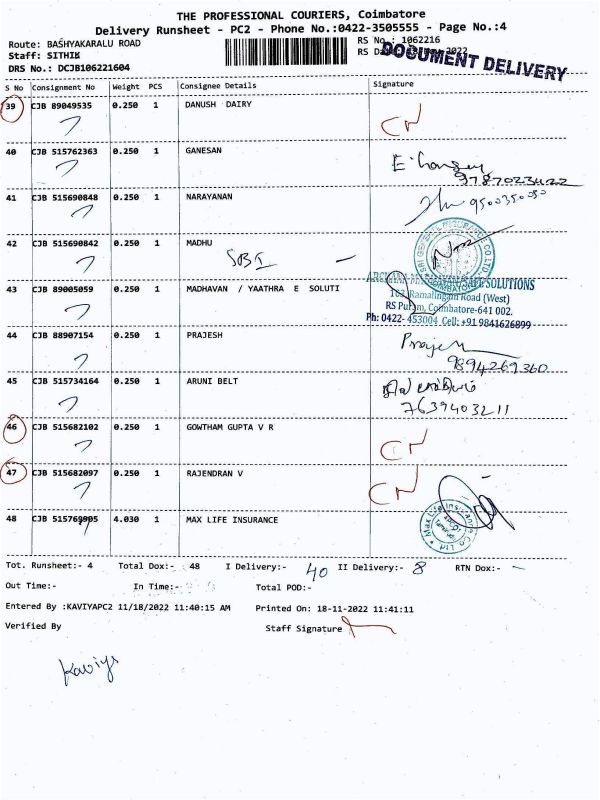 THE PROFESSIONAL COURIERS, Coimbatore
Delivery Runsheet - PC2 - Phone No.:0422-3505555 - Page No.:4
Route: BASHYAKARALU ROAD
RS No.: 1062216
Staff: SITHIK
RS Da 2022
DOCUMENT DELIVERY
DRS No.: DCJB106221604
S No Consignment No Weight PCS Consignee Details Signature
39 CJB 89049535 0.250 1 DANUSH DAIRY
CN
40 CJB 515762363 0.250 1 GANESAN
9787023422
41 CJB 515690848 0.250 1 NARAYANAN
9500350050
42 CJB 515690842 0.250 1 MADHU
SBI -
43 CJB 89005059 0.250 1 MADHAVAN /YAATHRA E SOLUTI
SAFE SOLUTIONS
163, Ramalingam Road (West)
RS Puram, Coimbatore-641 002.
Ph: 0422- 453004 Cell: +91 9841626899
44 CJB 88907154 0.250 1 PRAJESH
Prajesh
9894269360
45 CJB 515734164 0.250 1 ARUNI BELT
7639403211
46 CJB 515682102 0.250 1 GOWTHAM GUPTA V R
CN
47 CJB 515682097 0.250 1 RAJENDRAN V
CN
48 CJB 515769905 4.030 1 MAX LIFE INSURANCE
Max Life Insurance Co Ltd
Tot. Runsheet:- 4 Total Dox:- 48 I Delivery:- 40 II Delivery:- 8 RTN Dox:- -
Out Time:- In Time:- Total POD:-
Entered By :KAVIYAPC2 11/18/2022 11:40:15 AM Printed On: 18-11-2022 11:41:11
Verified By Staff Signature
Kaviya